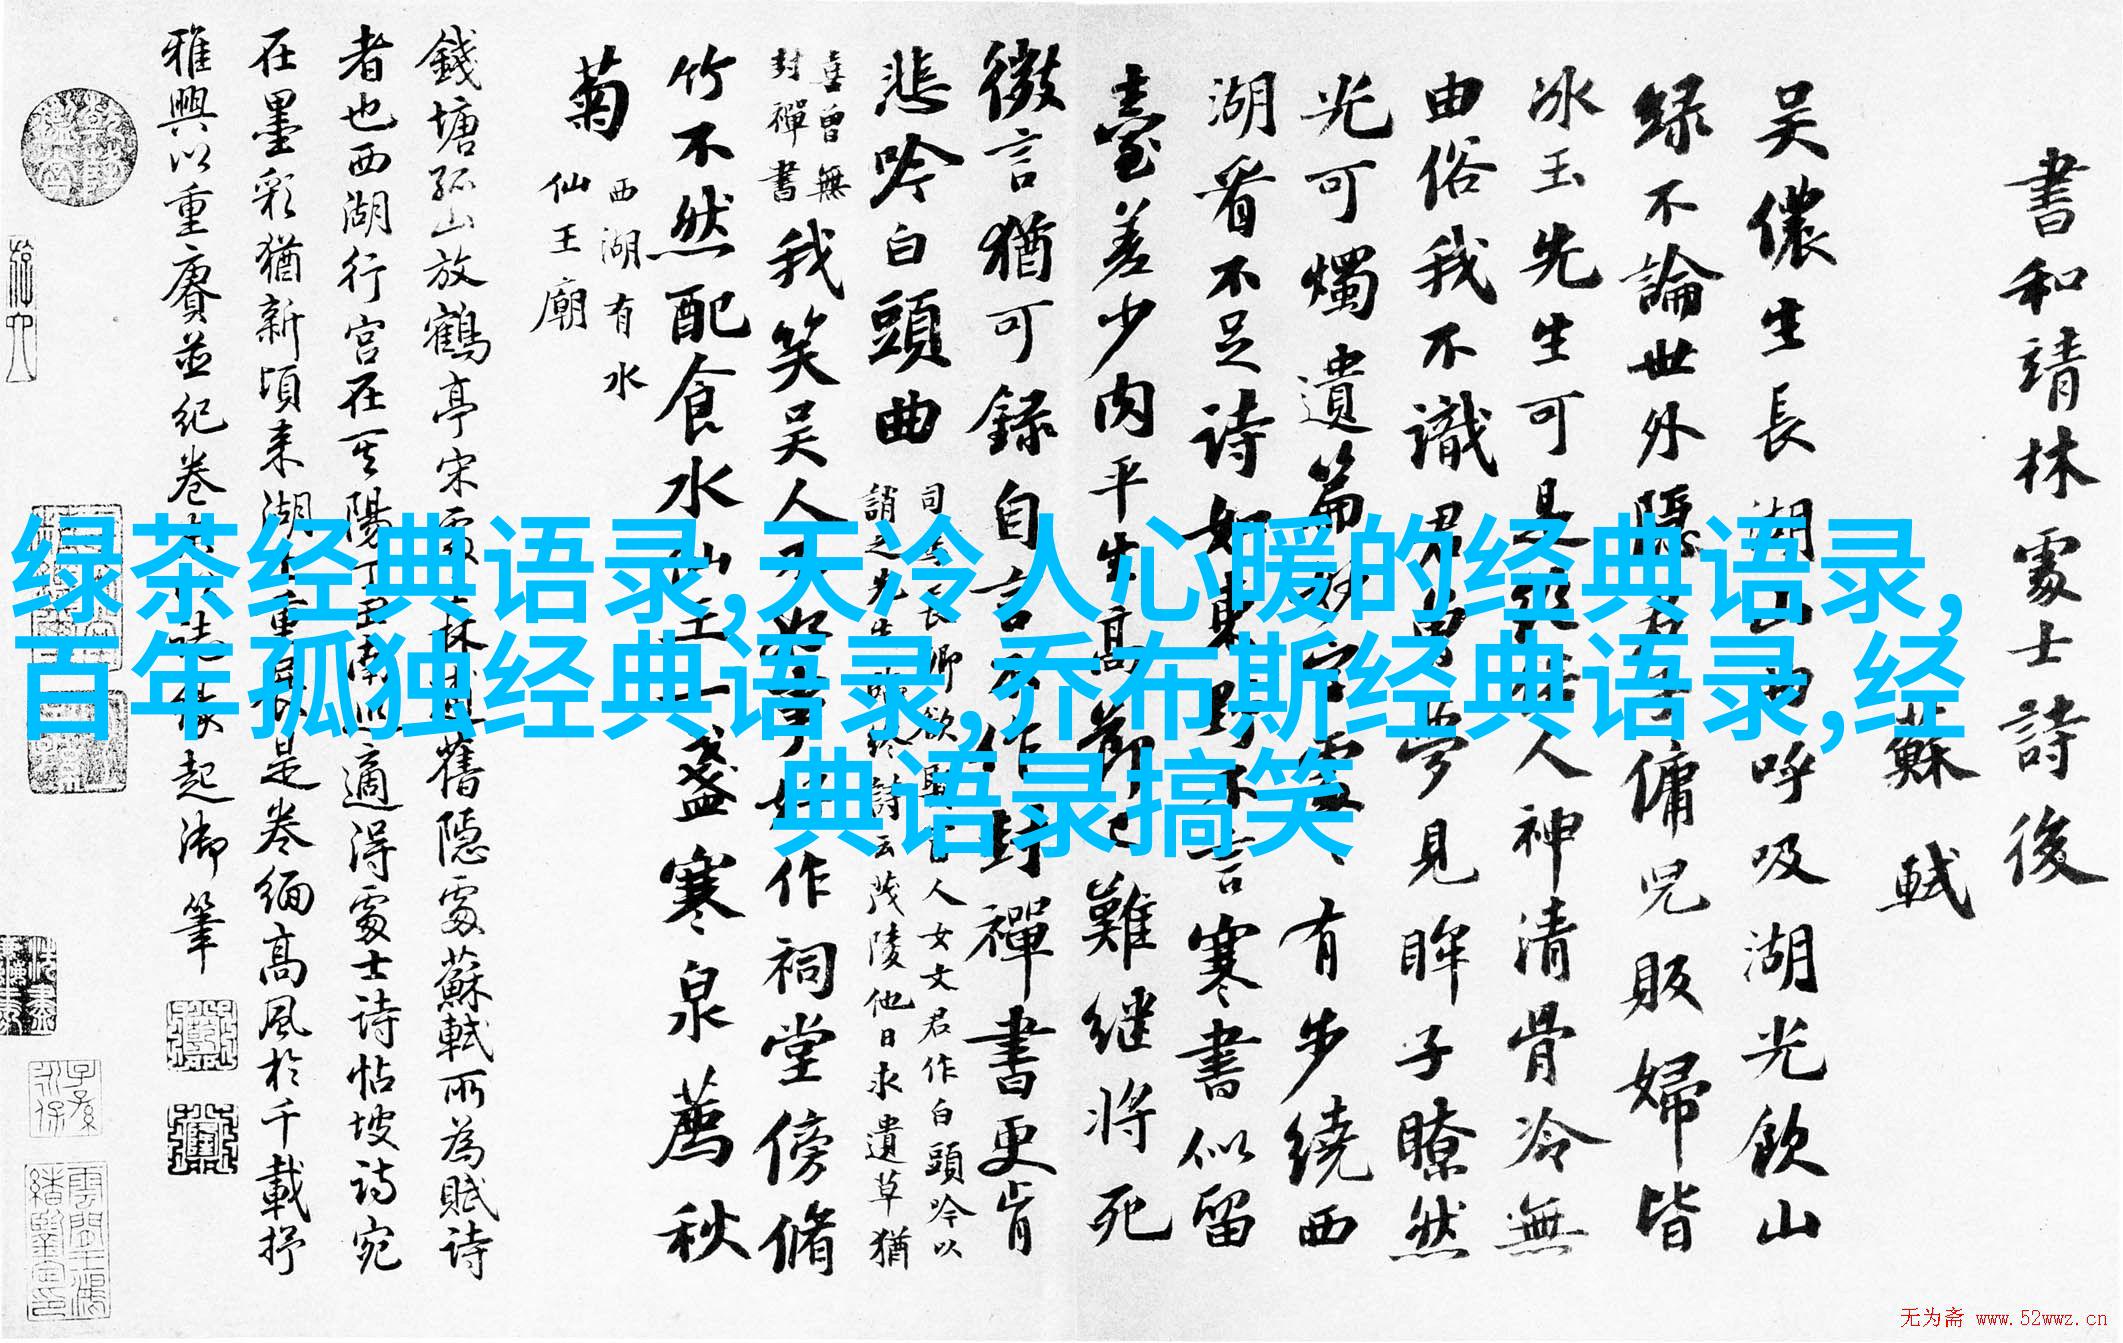 書和靖林處士詩後
蘇軾
吴儂生長湖山曲呼吸湖光飲山
緑不論世外隱君子傭兒販婦皆
冰玉先生可是絶俗人神清骨冷無
由俗我不識君曾夢見眸子瞭然
光可燭遺篇妙字處處有步繞西
湖看不足詩如東野不言寒書似留
臺差少肉平生高節已難繼將死
微言猶可録自言不作封禪書更肯
悲吟白頭曲
我笑吴人不好事好作祠堂傍脩
竹不然配食水仙王一盞寒泉薦秋
菊
西湖有水
仙王廟
錢塘孤山放鶴亭宋處士林逋舊隱處蘇軾所為賦詩
者也西湖行宫在
適得處士詩帖坡詩宛
在墨彩猶新頃来湖
是卷緬高風於千載抒
雅興以重賡並紀卷
起御筆
绿茶经典语录,天冷人心暖的经典语录,
百年孤独经典语录,乔布斯经典语录,经
典语录搞笑
无为斋 www.52wwz.cn